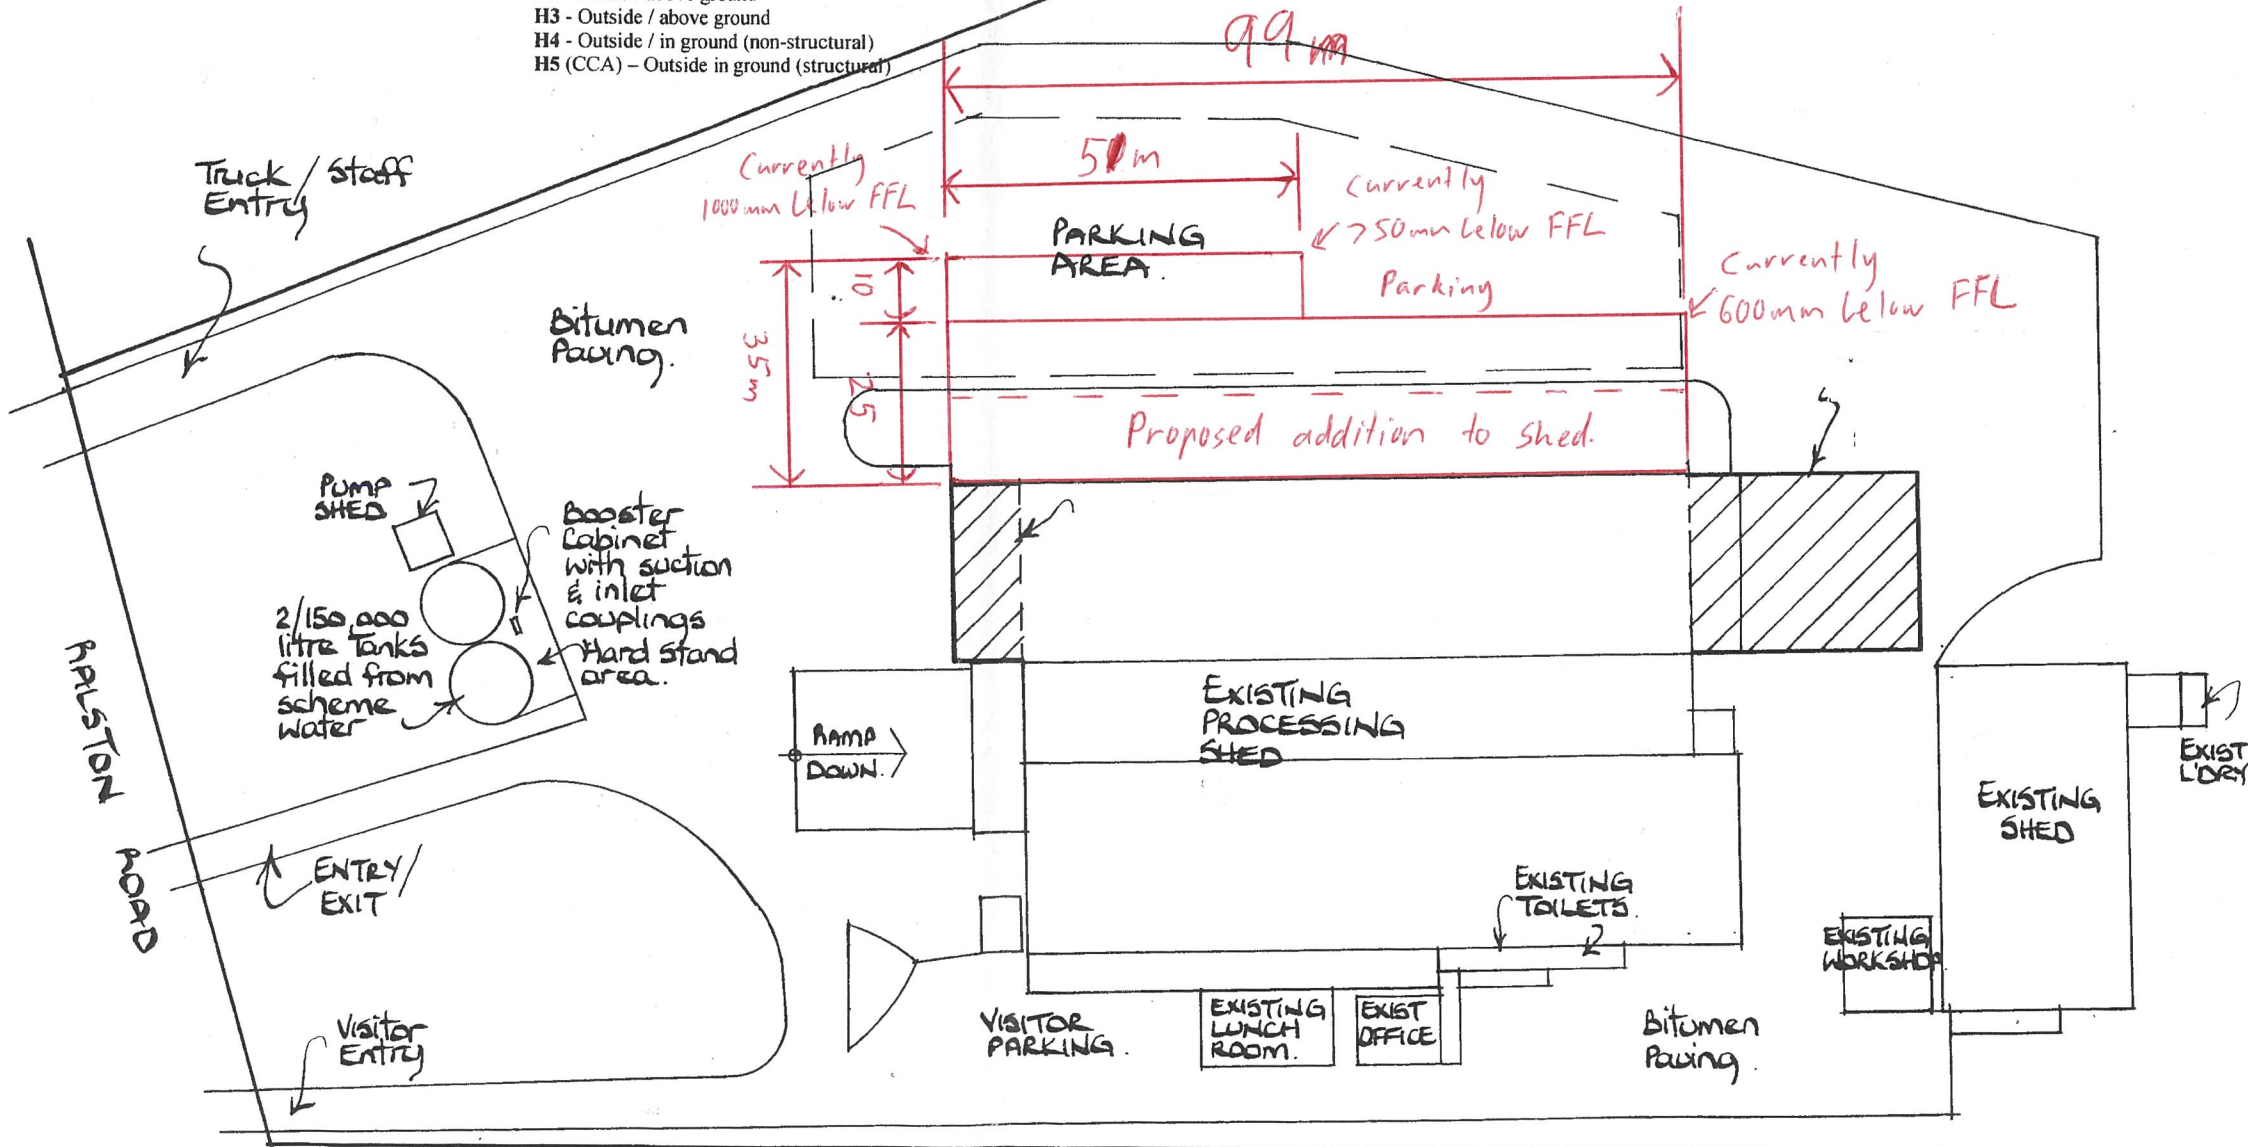 H3 - Outside / above ground
H4 - Outside / in ground (non-structural)
H5 (CCA) – Outside in ground (structural)
99m
51m
Currently
1000mm below FFL
Currently
750mm below FFL
Currently
600mm below FFL
Truck / Staff
Entry
PARKING
AREA.
Parking
10
35m
25
Bitumen
Paving.
Proposed addition to shed.
PUMP
SHED
Booster
Cabinet
with suction
& inlet
couplings
2/150,000
litre Tanks
filled from
scheme
water
Hard Stand
area.
RALSTON
ROAD
EXISTING
PROCESSING
SHED
RAMP
DOWN.
EXIST
L'DRY
EXISTING
SHED
ENTRY/
EXIT
EXISTING
TOILETS.
EXISTING
WORKSHOP
Visitor
Entry
VISITOR
PARKING.
EXISTING
LUNCH
ROOM.
EXIST
OFFICE
Bitumen
Paving.